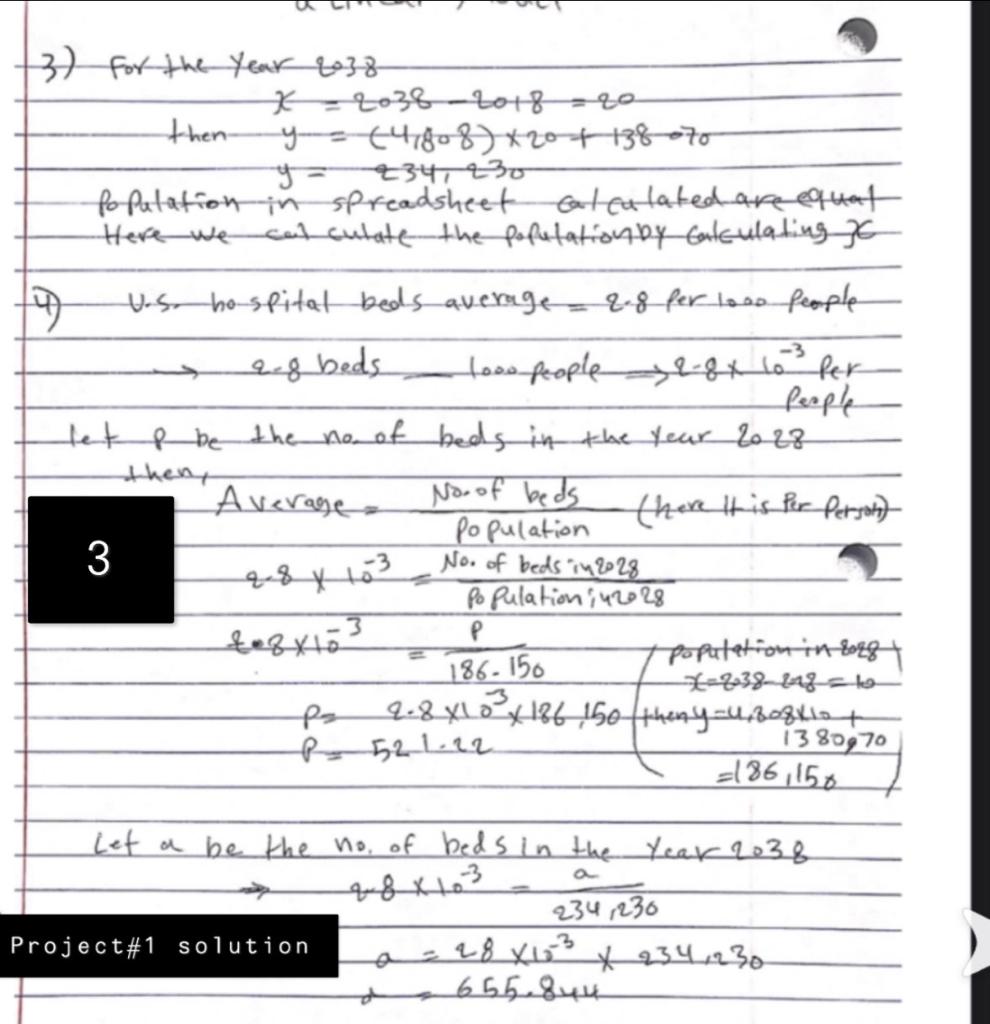 3) For the Year 2038
x = 2038 - 2018 = 20
then y = (4,808) × 20 + 138 070
y = 234, 230
Population in spreadsheet calculated are equal
Here we calculate the population by calculating x
4) U.S. hospital beds average = 2.8 Per 1000 People
→ 2.8 beds — 1000 people ⇒ 2.8 × 10⁻³ Per
People
let P be the no. of beds in the Year 2028
then,
Average = No. of beds / Population (here It is Per Person)
3
2.8 × 10⁻³ = No. of beds in 2028 / Population in 2028
2.8 × 10⁻³ = P / 186.150
(population in 2028
x = 2038 - 218 = 10
P = 2.8 × 10⁻³ × 186,150
then y = 4,808×10 +
138070
P = 521.22
= 186,150)
Let a be the no. of beds in the Year 2038
⇒ 2.8 × 10⁻³ = a / 234,230
Project#1 solution
a = 28 × 10⁻³ × 234,230
a = 655.844